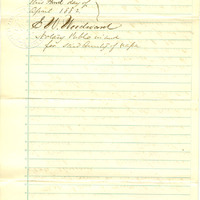 this 2nd day of
April 1882
E. W. Woodward
Notary Public in and
for said County of Napa